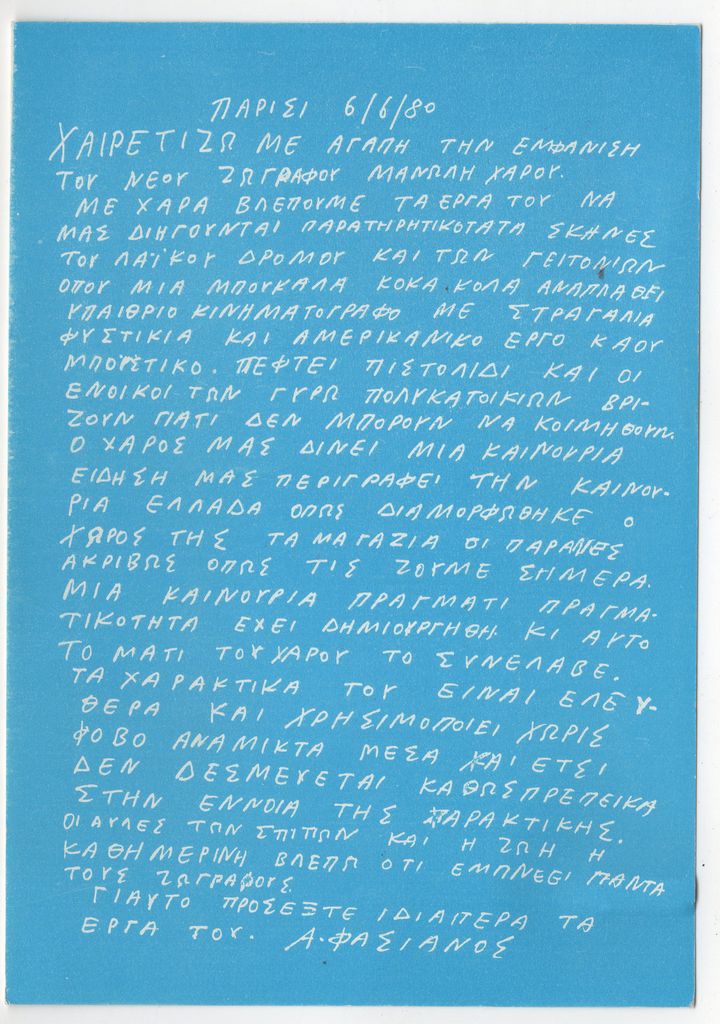 ΠΑΡΙΣΙ 6/6/80
ΧΑΙΡΕΤΙΖΩ ΜΕ ΑΓΑΠΗ ΤΗΝ ΕΜΦΑΝΙΣΗ
ΤΟΥ ΝΕΟΥ ΖΩΓΡΑΦΟΥ ΜΑΝΩΛΗ ΧΑΡΟΥ.
ΜΕ ΧΑΡΑ ΒΛΕΠΟΥΜΕ ΤΑ ΕΡΓΑ ΤΟΥ ΝΑ
ΜΑΣ ΔΙΗΓΟΥΝΤΑΙ ΠΑΡΑΤΗΡΗΤΙΚΟΤΑΤΑ ΣΚΗΝΕΣ
ΤΟΥ ΛΑΪΚΟΥ ΔΡΟΜΟΥ ΚΑΙ ΤΩΝ ΓΕΙΤΟΝΙΩΝ
ΟΠΟΥ ΜΙΑ ΜΠΟΥΚΑΛΑ ΚΟΚΑ ΚΟΛΑ ΑΝΑΠΛΑΘΕΙ
ΥΠΑΙΘΡΙΟ ΚΙΝΗΜΑΤΟΓΡΑΦΟ ΜΕ ΣΤΡΑΓΑΛΙΑ
ΦΥΣΤΙΚΙΑ ΚΑΙ ΑΜΕΡΙΚΑΝΙΚΟ ΕΡΓΟ ΚΑΟΥ
ΜΠΟΫΣΤΙΚΟ. ΠΕΦΤΕΙ ΠΙΣΤΟΛΙΔΙ ΚΑΙ ΟΙ
ΕΝΟΙΚΟΙ ΤΩΝ ΓΥΡΩ ΠΟΛΥΚΑΤΟΙΚΙΩΝ ΒΡΙ-
ΖΟΥΝ ΓΙΑΤΙ ΔΕΝ ΜΠΟΡΟΥΝ ΝΑ ΚΟΙΜΗΘΟΥΝ.
Ο ΧΑΡΟΣ ΜΑΣ ΔΙΝΕΙ ΜΙΑ ΚΑΙΝΟΥΡΙΑ
ΕΙΔΗΣΗ ΜΑΣ ΠΕΡΙΓΡΑΦΕΙ ΤΗΝ ΚΑΙΝΟΥ-
ΡΙΑ ΕΛΛΑΔΑ ΟΠΩΣ ΔΙΑΜΟΡΦΩΘΗΚΕ Ο
ΧΩΡΟΣ ΤΗΣ ΤΑ ΜΑΓΑΖΙΑ ΟΙ ΠΑΡΑΝΕΣ
ΑΚΡΙΒΩΣ ΟΠΩΣ ΤΙΣ ΖΟΥΜΕ ΣΗΜΕΡΑ.
ΜΙΑ ΚΑΙΝΟΥΡΙΑ ΠΡΑΓΜΑΤΙ ΠΡΑΓΜΑ-
ΤΙΚΟΤΗΤΑ ΕΧΕΙ ΔΗΜΙΟΥΡΓΗΘΗ ΚΙ ΑΥΤΟ
ΤΟ ΜΑΤΙ ΤΟΥ ΧΑΡΟΥ ΤΟ ΣΥΝΕΛΑΒΕ.
ΤΑ ΧΑΡΑΚΤΙΚΑ ΤΟΥ ΕΙΝΑΙ ΕΛΕΥ-
ΘΕΡΑ ΚΑΙ ΧΡΗΣΙΜΟΠΟΙΕΙ ΧΩΡΙΣ
ΦΟΒΟ ΑΝΑΜΙΚΤΑ ΜΕΣΑ ΚΑΙ ΕΤΣΙ
ΔΕΝ ΔΕΣΜΕΥΕΤΑΙ ΚΑΘΩΣΠΡΕΠΕΙΚΑ
ΣΤΗΝ ΕΝΝΟΙΑ ΤΗΣ ΧΑΡΑΚΤΙΚΗΣ.
ΟΙ ΑΥΛΕΣ ΤΩΝ ΣΠΙΤΙΩΝ ΚΑΙ Η ΖΩΗ Η
ΚΑΘΗΜΕΡΙΝΗ ΒΛΕΠΩ ΟΤΙ ΕΜΠΝΕΕΙ ΠΑΝΤΑ
ΤΟΥΣ ΖΩΓΡΑΦΟΥΣ
ΓΙΑΥΤΟ ΠΡΟΣΕΞΤΕ ΙΔΙΑΙΤΕΡΑ ΤΑ
ΕΡΓΑ ΤΟΥ. Α. ΦΑΣΙΑΝΟΣ